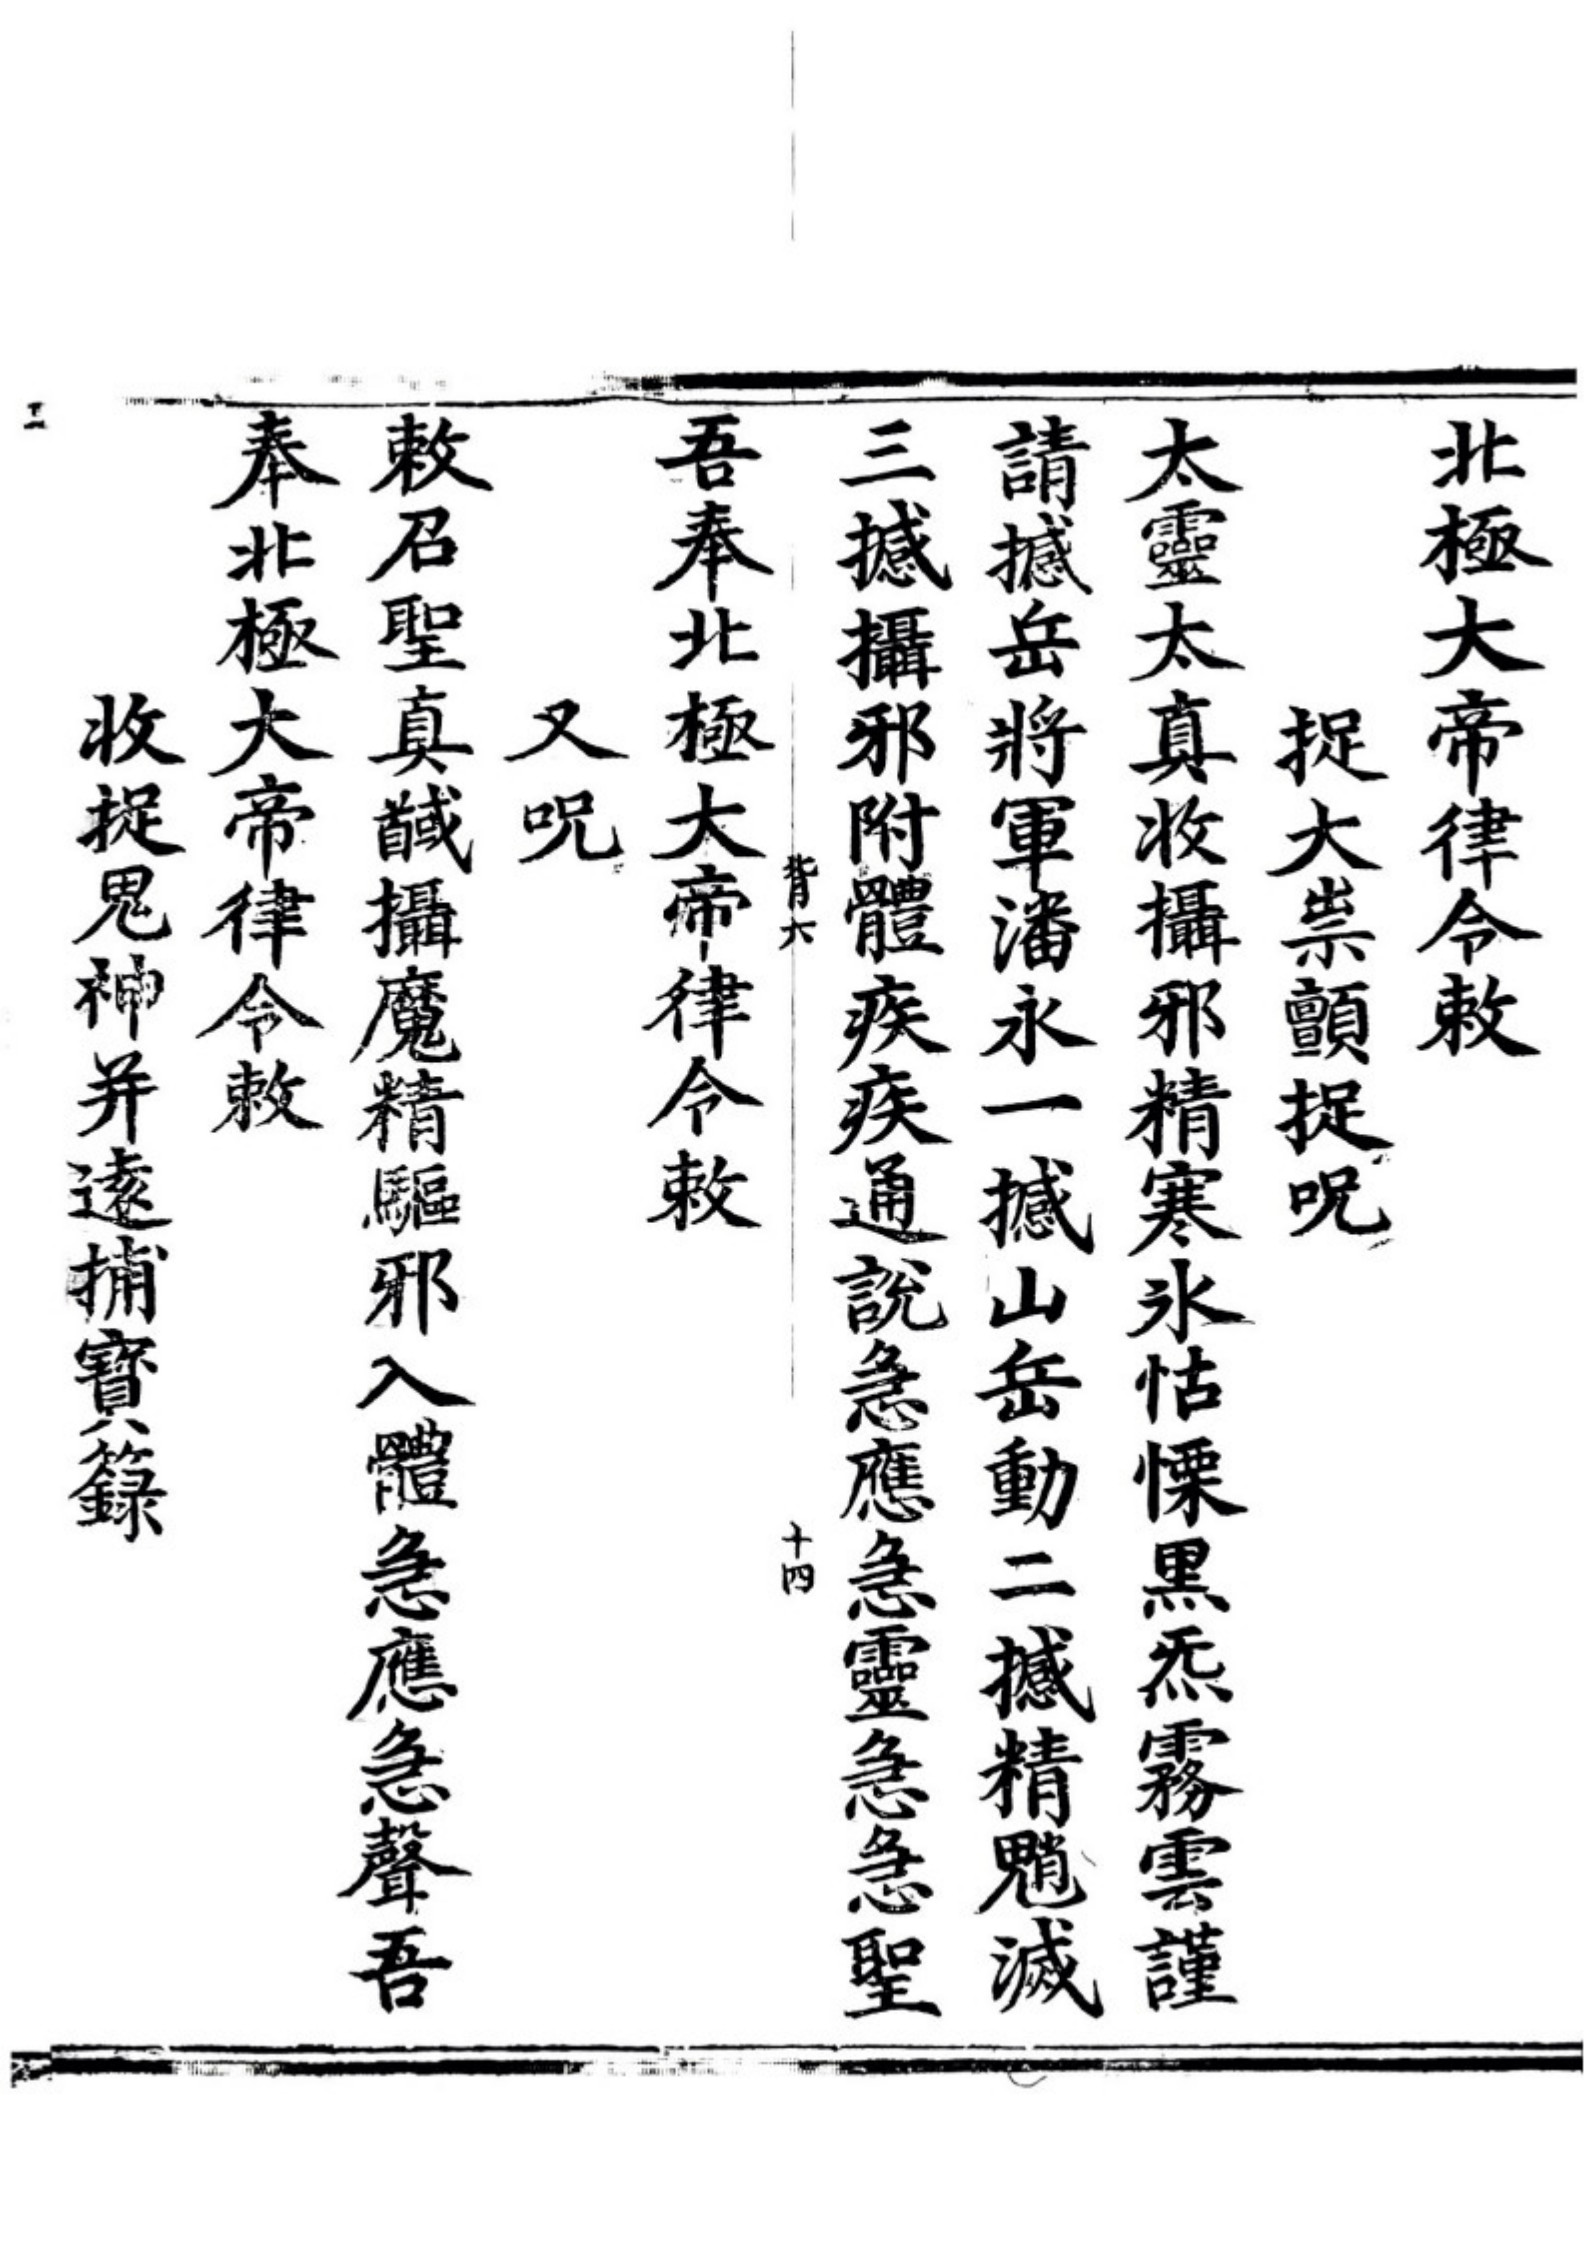 北極大帝律令敕
捉大祟顫捉呪
太靈太真收攝邪精寒氷怙慄黒炁霧雲謹
請撼岳將軍潘永一撼山岳動二撼精魈滅
三撼攝邪附體疾疾通說急應急靈急急聖
背六
十四
吾奉北極大帝律令敕
又呪
敕召聖真馘攝魔精驅邪入體急應急聲吾
奉北極大帝律令敕
收捉鬼神并遠捕寶籙